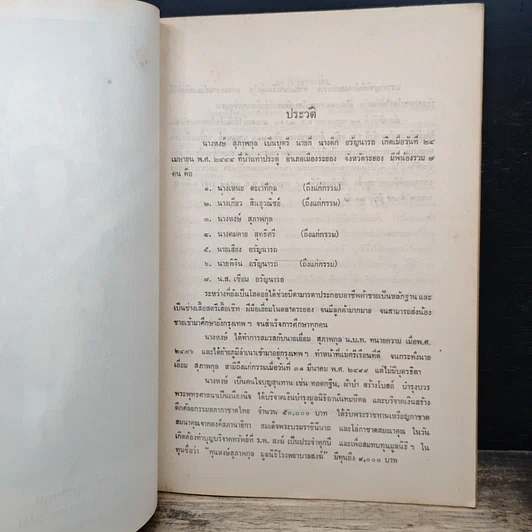 ประวัติ
นางหงษ์ สุภาพกุล เป็นบุตรี นายกี่ นางตึก อรัญนารถ เกิดเมื่อวันที่ ๒๔
เมษายน พ.ศ. ๒๔๔๔ ที่บ้านท่าประดู่ อำเภอเมืองระยอง จังหวัดระยอง มีพี่น้องรวม ๗
คน คือ
๑. นางเหน่ง ตะเวทีกุล (ถึงแก่กรรม)
๒. นางเกี่ยว สินธุวณิชย์ (ถึงแก่กรรม)
๓. นางหงษ์ สุภาพกุล
๔. นางคมคาย สุทธิศรี (ถึงแก่กรรม)
๕. นายเสียง อรัญนารถ
๖. นายพิจิน อรัญนารถ (ถึงแก่กรรม)
๗. น.ส. เชื่อม อรัญนารถ
ระหว่างที่ยังเป็นโสดอยู่ได้ช่วยบิดามารดาประกอบอาชีพค้าขายเป็นหลักฐาน และ
เป็นช่างเสื้อสตรีเสื้อเชิ้ต ฝีมือเยี่ยมในตลาดระยอง จนมีลูกค้ามากมาย จนสามารถส่งน้อง
ชายเข้ามาศึกษายังกรุงเทพ ฯ จนสำเร็จการศึกษาทุกคน
นางหงษ์ ได้ทำการสมรสกับนายเอี่ยม สุภาพกุล น.บ.ท. ทนายความ เมื่อพ.ศ.
๒๔๗๖ และได้ย้ายภูมิลำเนาเข้ามาอยู่กรุงเทพ ฯ ทำหน้าที่แม่ศรีเรือนที่ดี จนกระทั่งนาย
เอี่ยม สุภาพกุล สามีถึงแก่กรรมเมื่อวันที่ ๓๑ มีนาคม พ.ศ. ๒๔๙๙ แต่ไม่มีบุตรธิดา
นางหงษ์ เป็นคนใจบุญสุนทาน เช่น ทอดกฐิน, ผ้าป่า สร้างโบสถ์ บำรุงบวร
พระพุทธศาสนาเป็นเนืองนิจ ได้บริจาคเงินบำรุงมูลนิธิอานันทมหิดล และบริจาคเงินสร้าง
ตึกศัลกรรมสภากาชาดไทย จำนวน ๕๐,๐๐๐ บาท ได้รับพระราชทานเหรียญกาชาด
สมนาคุณจากองค์สภานายิกา สมเด็จพระบรมราชินีนาถ และโล่กาชาดสมณาคุณ ในวัน
เกิดต้องทำบุญบริจาคทรัพย์ที่ ร.พ. สงฆ์ เป็นประจำทุกปี และเพื่อสมทบทุนมูลนิธิ ฯ ใน
ทุนชื่อว่า "ทุนหงษ์สุภาพกุล มูลนิธิโรงพยาบาลสงฆ์" มีทุนถึง ๙,๐๐๐ บาท